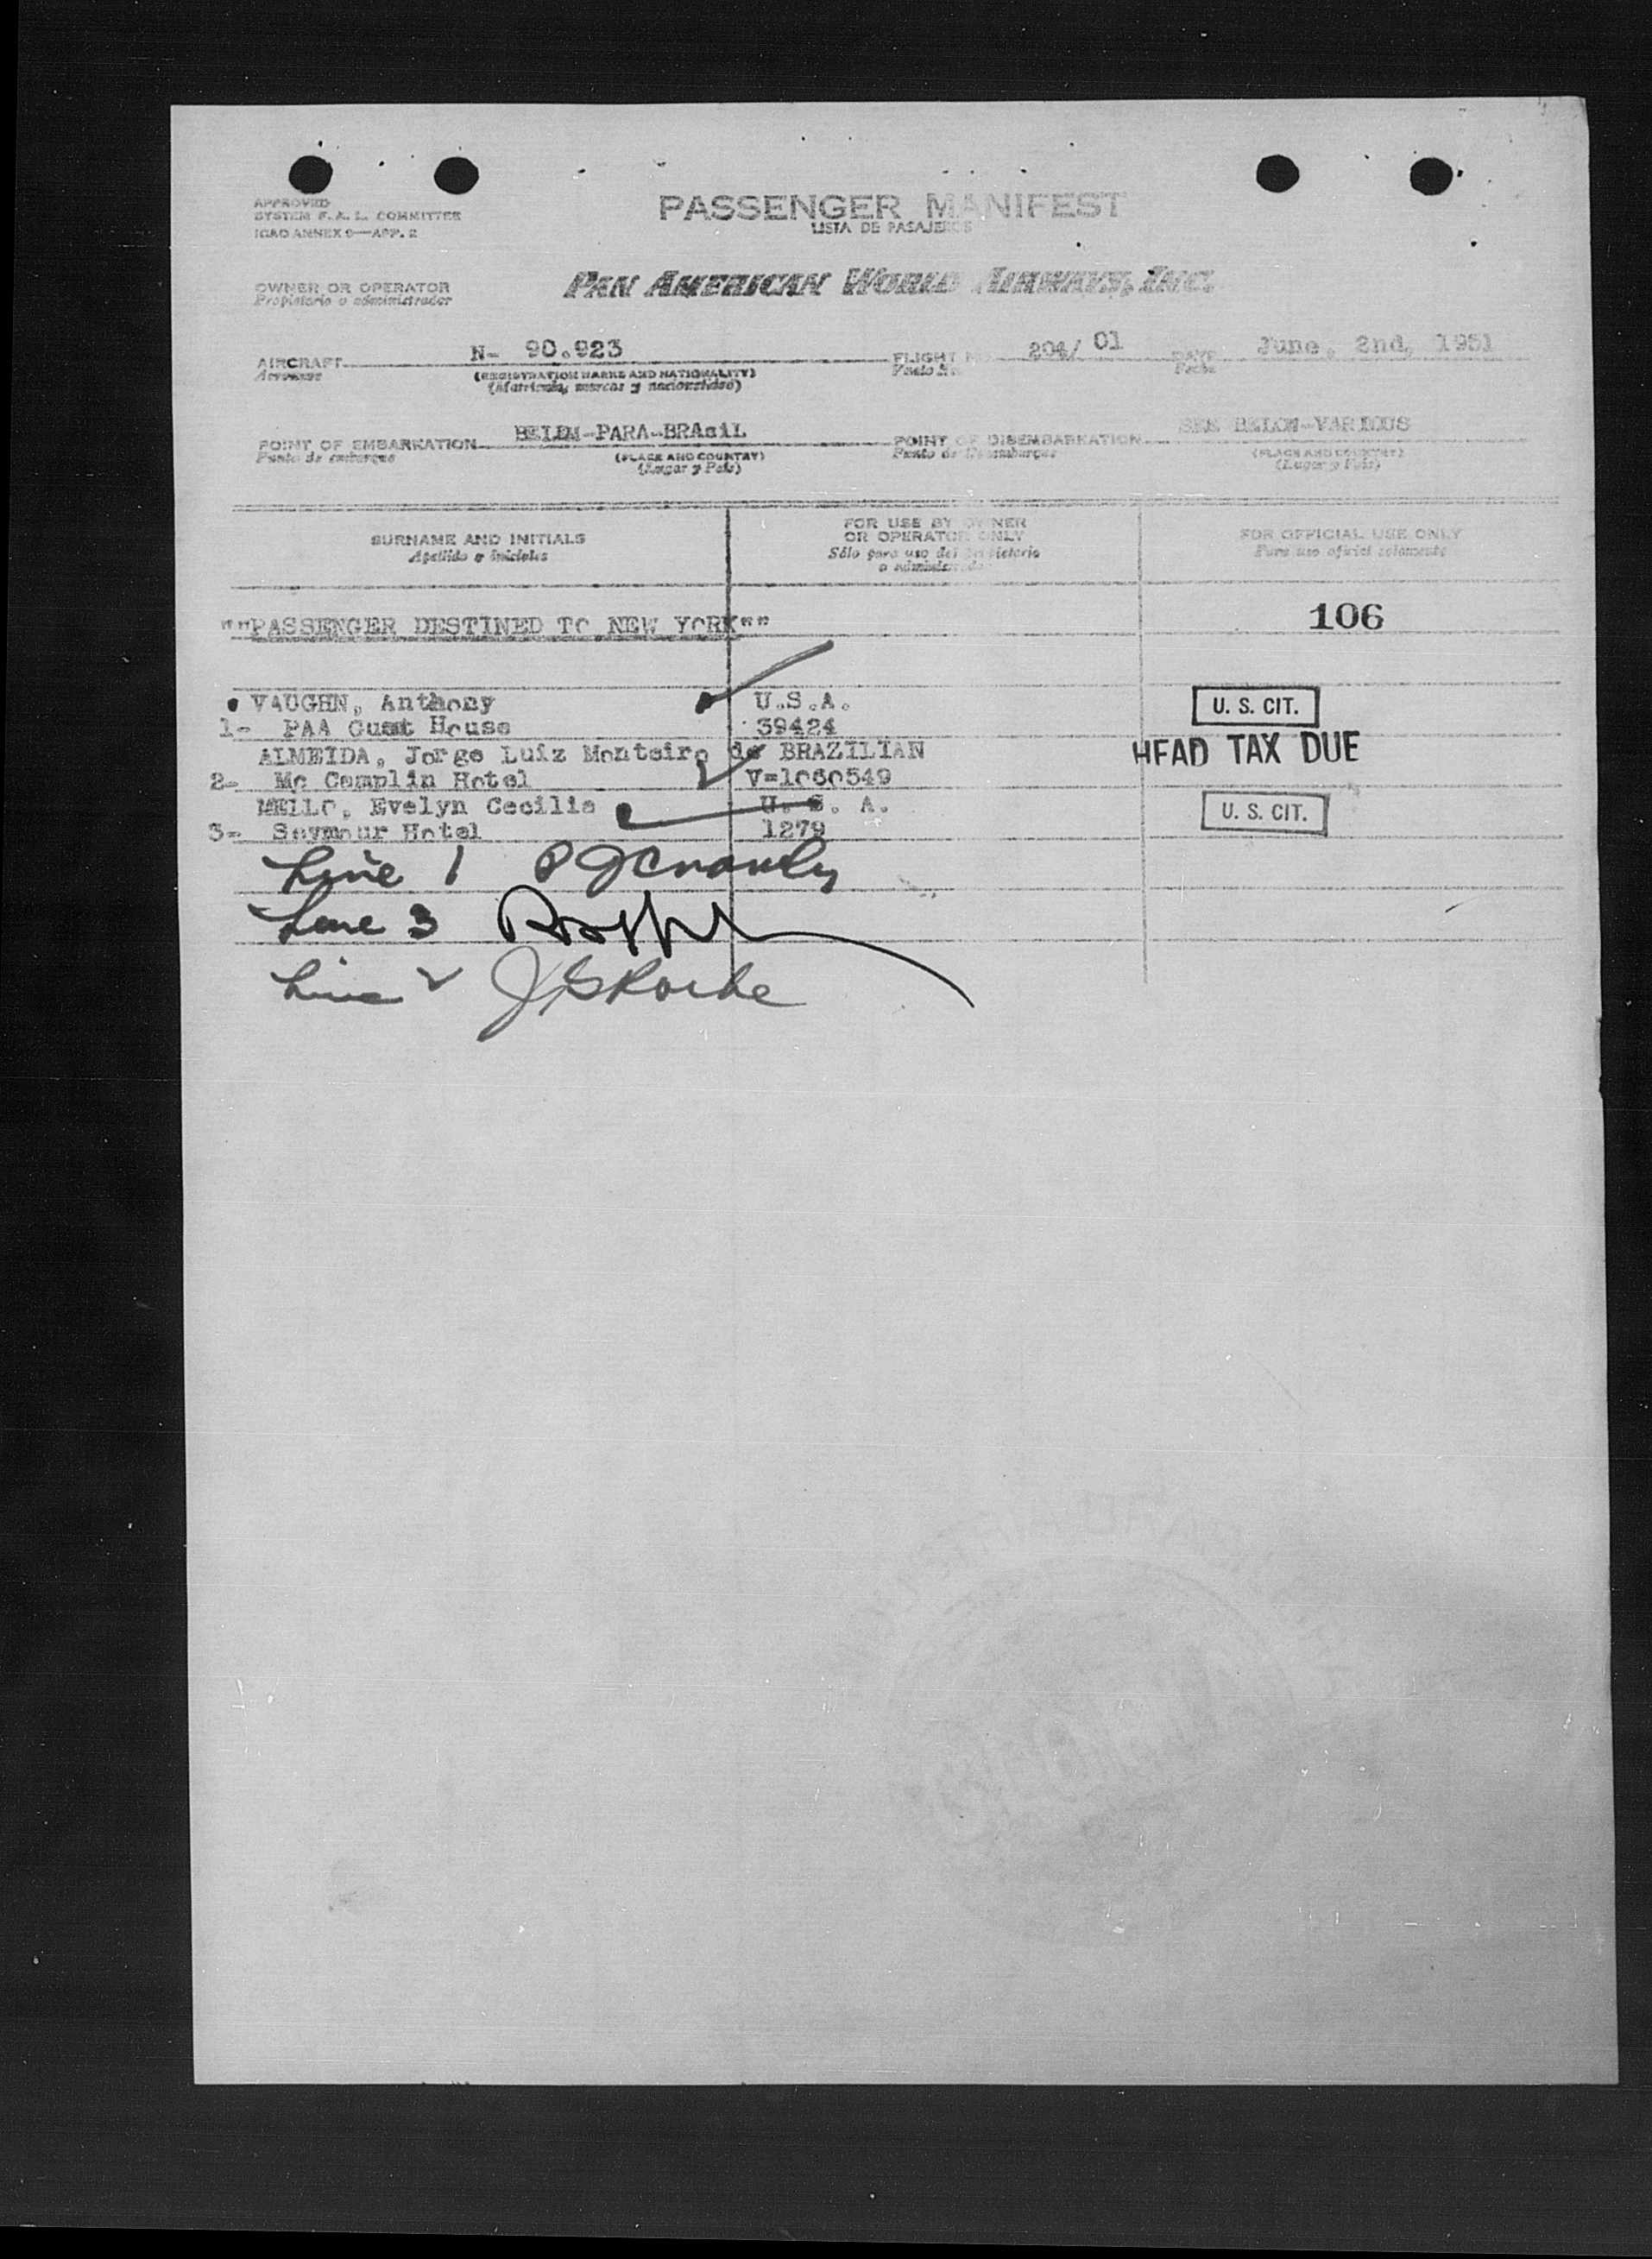 APPROVED
SYSTEM F. A. L. COMMITTEE
ICAO ANNEX 9—APP. 2
PASSENGER MANIFEST
LISTA DE PASAJEROS
OWNER OR OPERATOR
Propietario o administrador
PAN AMERICAN WORLD AIRWAYS, INC.
AIRCRAFT N- 90.923 FLIGHT NO. 204/ 01 DATE June, 2nd, 1951
Aeronave (REGISTRATION MARKS AND NATIONALITY) Vuelo No. Fecha
(Matrícula, marcas y nacionalidad)
POINT OF EMBARKATION BELEM-PARA-BRAsiL POINT OF DISEMBARKATION SEE BELOW-VARIOUS
Punto de embarque (PLACE AND COUNTRY) Punto de Desembarque (PLACE AND COUNTRY)
(Lugar y País) (Lugar y País)
SURNAME AND INITIALS
Apellido e iniciales
FOR USE BY OWNER
OR OPERATOR ONLY
Sólo para uso del propietario
o administrador
FOR OFFICIAL USE ONLY
Para uso oficial solamente
""PASSENGER DESTINED TO NEW YORK"" 106
VAUGHN, Anthony U.S.A. U. S. CIT.
1- PAA Guest House 39424
ALMEIDA, Jorge Luiz Monteiro de BRAZILIAN HEAD TAX DUE
2- Mc Camplin Hotel V=1060549
MELLO, Evelyn Cecilia U. S. A. U. S. CIT.
3- Seymour Hotel 1279
Line 1
Line 3
Line 2